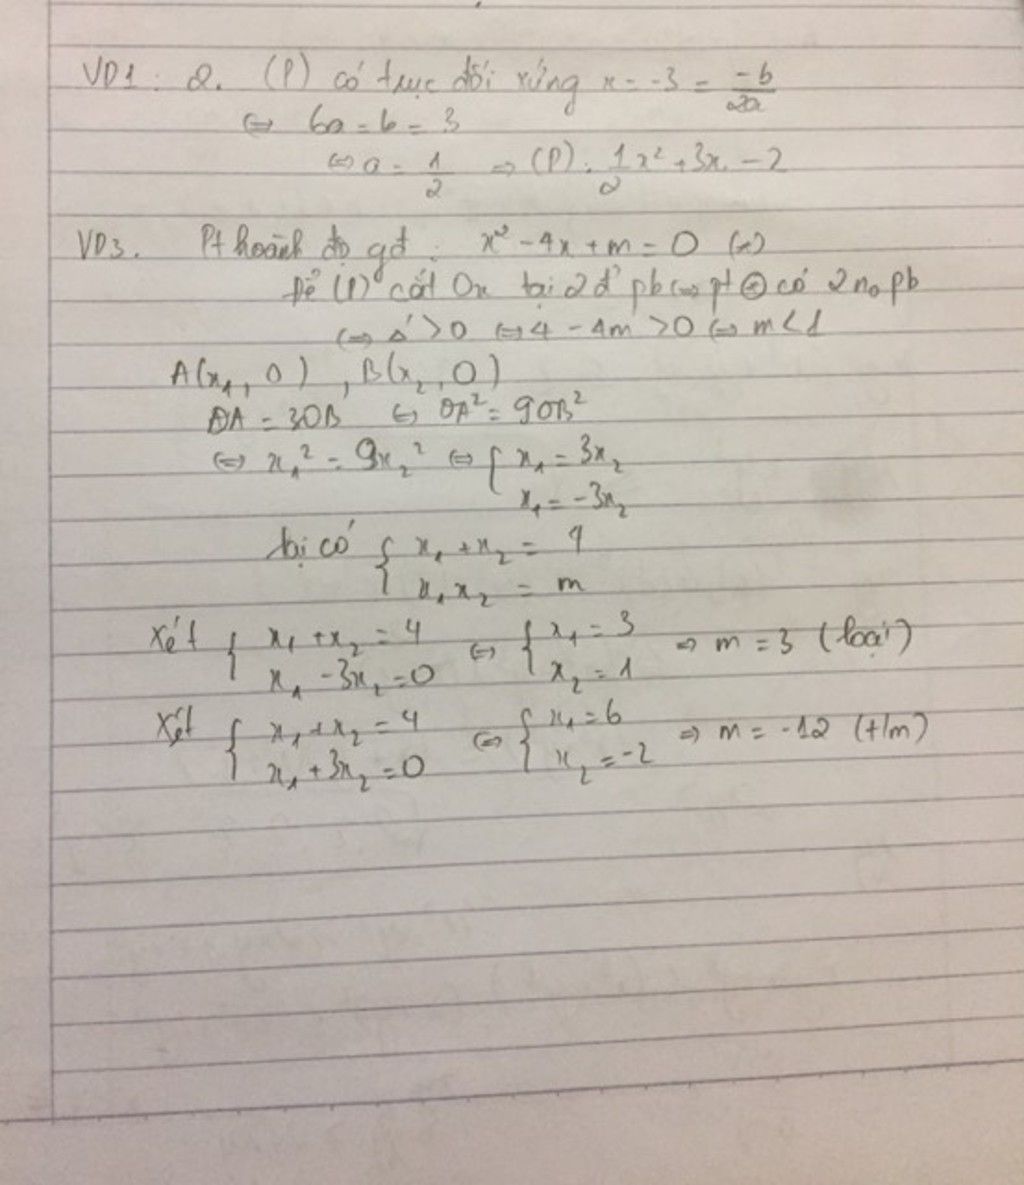 VD1: 2. (P) có trục đối xứng x = -3 = -b/2a
⇔ 6a = b = 3
⇔ a = 1/2 ⇒ (P): 1/2 x² + 3x - 2
VD3. Pt hoành độ gđ: x² - 4x + m = 0 (*)
Để (P) cắt Ox tại 2 đ' pb ⇔ pt (*) có 2 no pb
⇔ Δ' > 0 ⇔ 4 - 4m > 0 ⇔ m < 1
A(x₁, 0), B(x₂, 0)
OA = 3OB ⇔ OA² = 9OB²
⇔ x₁² = 9x₂² ⇔ { x₁ = 3x₂
x₁ = -3x₂
lại có { x₁ + x₂ = 4
x₁x₂ = m
Xét { x₁ + x₂ = 4 ⇔ { x₁ = 3 ⇒ m = 3 (loại)
x₁ - 3x₂ = 0 x₂ = 1
Xét { x₁ + x₂ = 4 ⇔ { x₁ = 6 ⇒ m = -12 (t/m)
x₁ + 3x₂ = 0 x₂ = -2